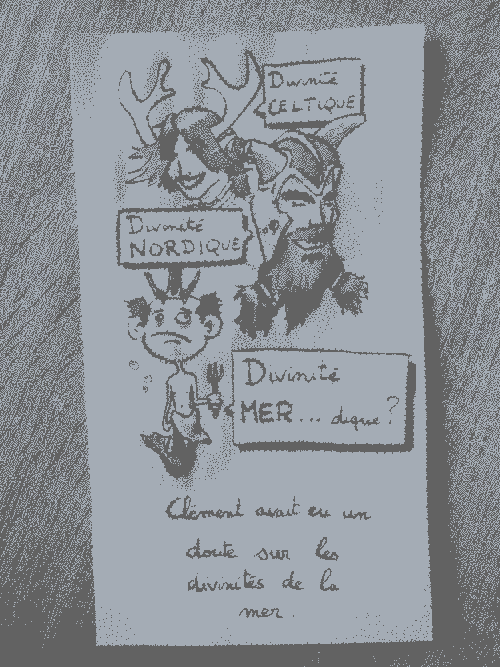 Divinité
CELTIQUE
Divinité
NORDIQUE
Divinité
MER... dique?
Clément avait eu un
doute sur les
divinités de la
mer.